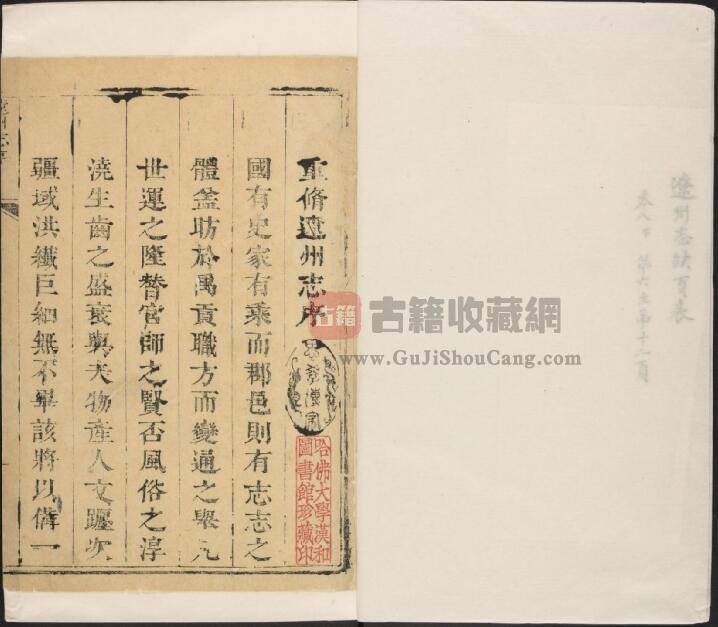 遼州志缺頁表
卷八下 第六至第十一頁
重脩遼州志序
國有史家有乘而郡邑則有志志之
體葢昉於禹貢職方而變通之舉凡
世運之隆替官師之賢否風俗之淳
澆生齒之盛衰與夫物產人文躔次
疆域洪纖巨細無不畢該將以備一
哈佛大學漢和
圖書館珍藏印
古籍
古籍收藏網
www.GuJiShouCang.com